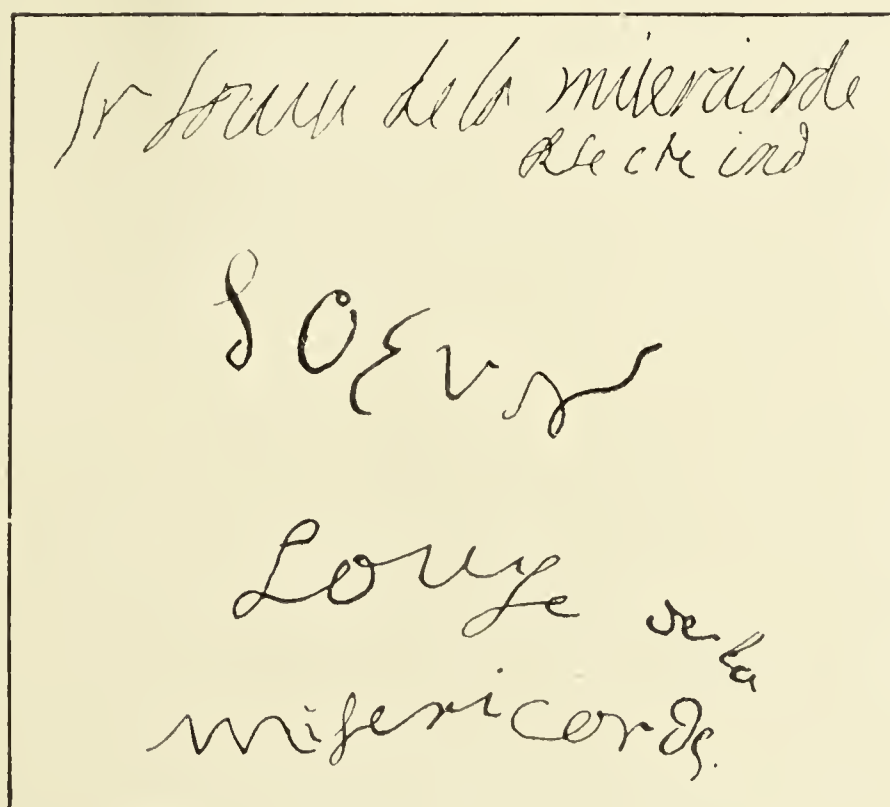 Sr Louise de la misericorde
Rse cte ind
SOEUr
Louyse de la
misericorde.